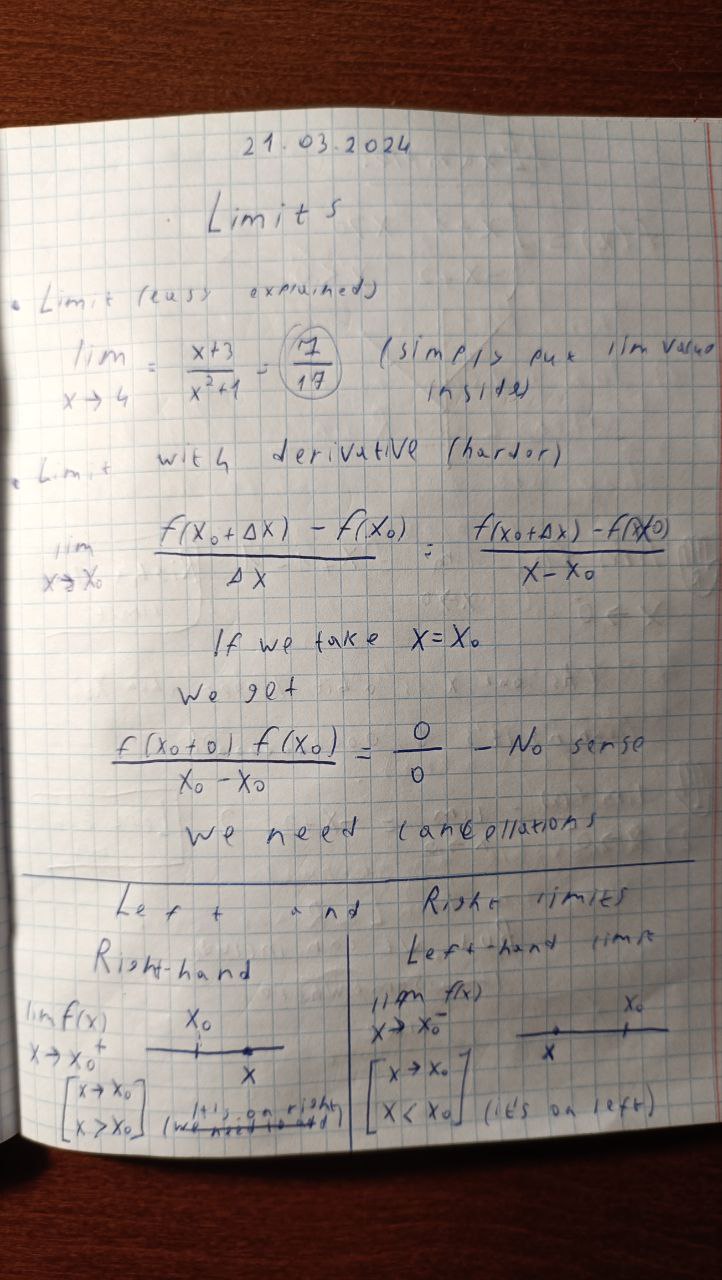 21.03.2024
Limits
• Limit (easy explained)
lim x→4 = x+3 / x²+1 = 7/17 (simply put lim value
inside)
• Limit with derivative (harder)
lim x→x₀ f(x₀+Δx) - f(x₀) / Δx = f(x₀+Δx) - f(x₀) / x-x₀
If we take x=x₀
We get
f(x₀+0) f(x₀) / x₀-x₀ = 0/0 - No sense
We need cancellations
Left and Right limits
Right-hand
lim f(x) x→x₀⁺
x₀
x
[x→x₀
x>x₀] (it's on right)
Left-hand limit
lim f(x) x→x₀⁻
x₀
x
[x→x₀
x<x₀] (it's on left)